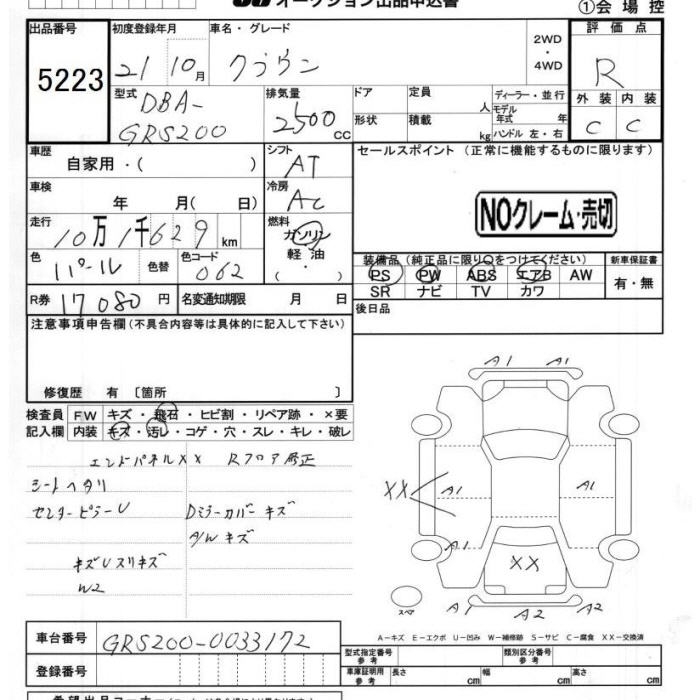 オークション出品申込書
①会場控
出品番号 初度登録年月 車名・グレード 評価点
5223 21 10月 クラウン 2WD・4WD R
型式 排気量 ドア 定員 人 ディーラー・並行 外装 内装
DBA- GRS200 2500 CC 形状 積載 kg モデル年式 年 ハンドル 左・右 C C
車歴 シフト セールスポイント (正常に機能するものに限ります)
自家用・( ) AT
車検 冷房
年 月( 日) AC NOクレーム・売切
走行 燃料
10万1千629km ガソリン 軽油・( )
色 色替 色コード 装備品(純正品に限り○をつけてください) 新車保証書
パール 062 PS PW ABS エアB AW 有・無
R券 17080円 名変通知期限 月 日 SR ナビ TV カワ
後日品
注意事項申告欄(不具合内容等は具体的に記入して下さい)
修復歴 有 〔箇所 〕
検査員 FW キズ・飛石・ヒビ割・リペア跡・×要
記入欄 内装 キズ・汚レ・コゲ・穴・スレ・キレ・破レ
エンドパネルXX Rフロア修正
シートヘタリ
センターピラーU Dミラーカバーキズ
A/Wキズ
キズUスリキズ
W2
A1 A1
XX A1 A1
A1
XX
A1 A2 A2
スペア
A−キズ E−エクボ U−凹み W−補修跡 S−サビ C−腐食 XX−交換済
車台番号 GRS200-0033172
型式指定番号 参考 類別区分番号 参考
登録番号 車庫証明用 参考 長さ cm 幅 cm 高さ cm